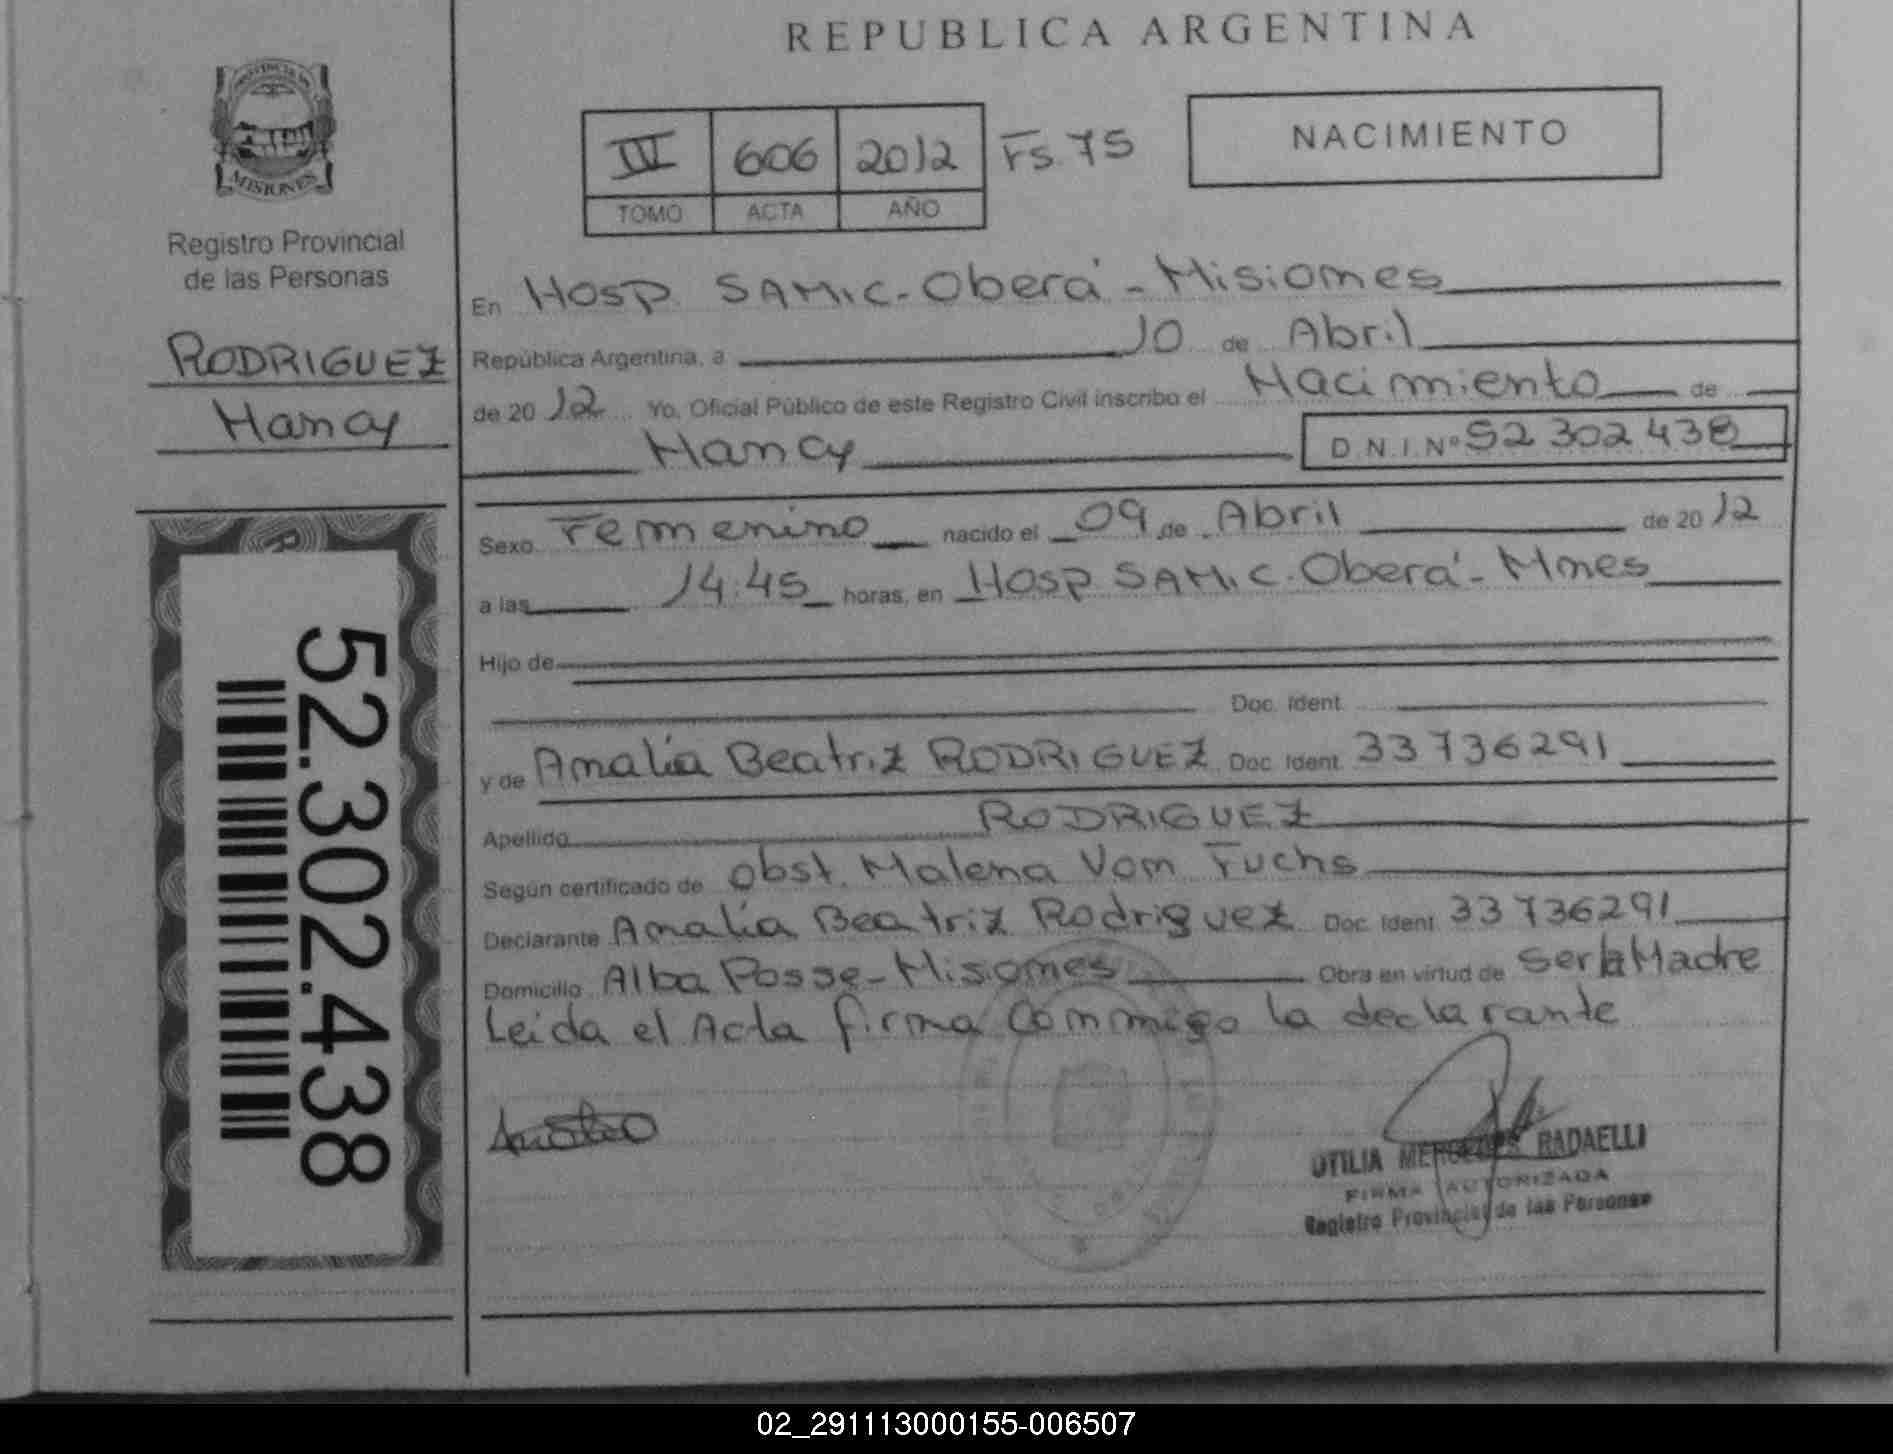 REPUBLICA ARGENTINA
PROVINCIA DE
MISIONES
Registro Provincial
de las Personas
RODRIGUEZ
Nancy
52.302.438
III 606 2012 Fs. 75
TOMO ACTA AÑO
NACIMIENTO
En Hosp SAMIC - Oberá - Misiones
República Argentina, a 10 de Abril
de 2012 Yo, Oficial Público de este Registro Civil inscribo el Nacimiento de
Nancy D.N.I. Nº 52 302 438
Sexo Femenino nacido el 09 de Abril de 2012
a las 14:45 horas, en Hosp SAMIC. Oberá - Mnes
Hijo de
Doc. Ident.
y de Amalia Beatriz RODRIGUEZ Doc. Ident. 33736291
Apellido RODRIGUEZ
Según certificado de Obst. Malena Von Fuchs
Declarante Amalia Beatriz Rodriguez Doc. Ident. 33736291
Domicilio Alba Posse - Misiones Obra en virtud de ser la Madre
Leida el Acta firma conmigo la declarante
OTILIA MERCEDES RADAELLI
FIRMA AUTORIZADA
Registro Provincial de las Personas
02_291113000155-006507